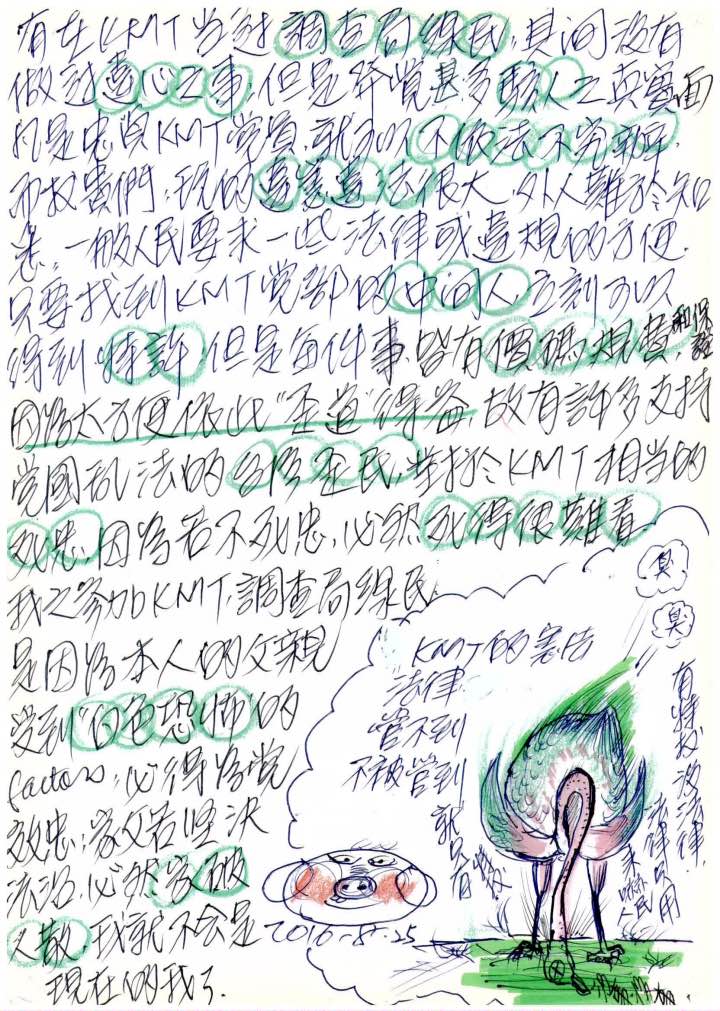 有在KMT当过調查局線民,其间没有
做过違心之事,但是發覚甚多驗人之真實面
凡是忠貞KMT党員,就可以不依法不究辦,
而权貴們,現的違法很大,外人難於知
悉,一般人民要求一些法律或違規的方便.
只要找到KMT党部的中间人,立刻可以
得到"特許"但是每件事,皆有價碼規費和保證
因為太方便依此"歪道"得益,故有許多支持
党國乱法的台湾歪民,对於KMT相当的
死忠,因為若不死忠,必然死得很難看
我之参加KMT,調查局線民,
是因為本人的父親
受到"白色恐怖"的
factors,必得為党
效忠,家父若坚決
法治,必然家破
人散,我就不会是
現在的我了.
臭
臭
KMT的憲法
法律
管不到
不被管到
就只有
特权
有特权没法律,
法律只用
來
人民
2016-8-25